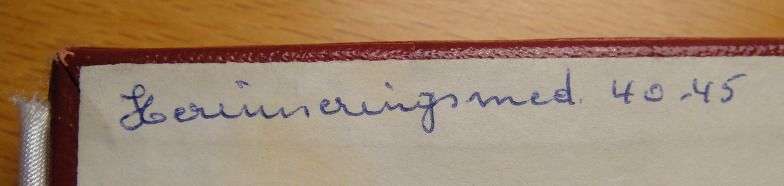 Herinneringsmed. 40-45